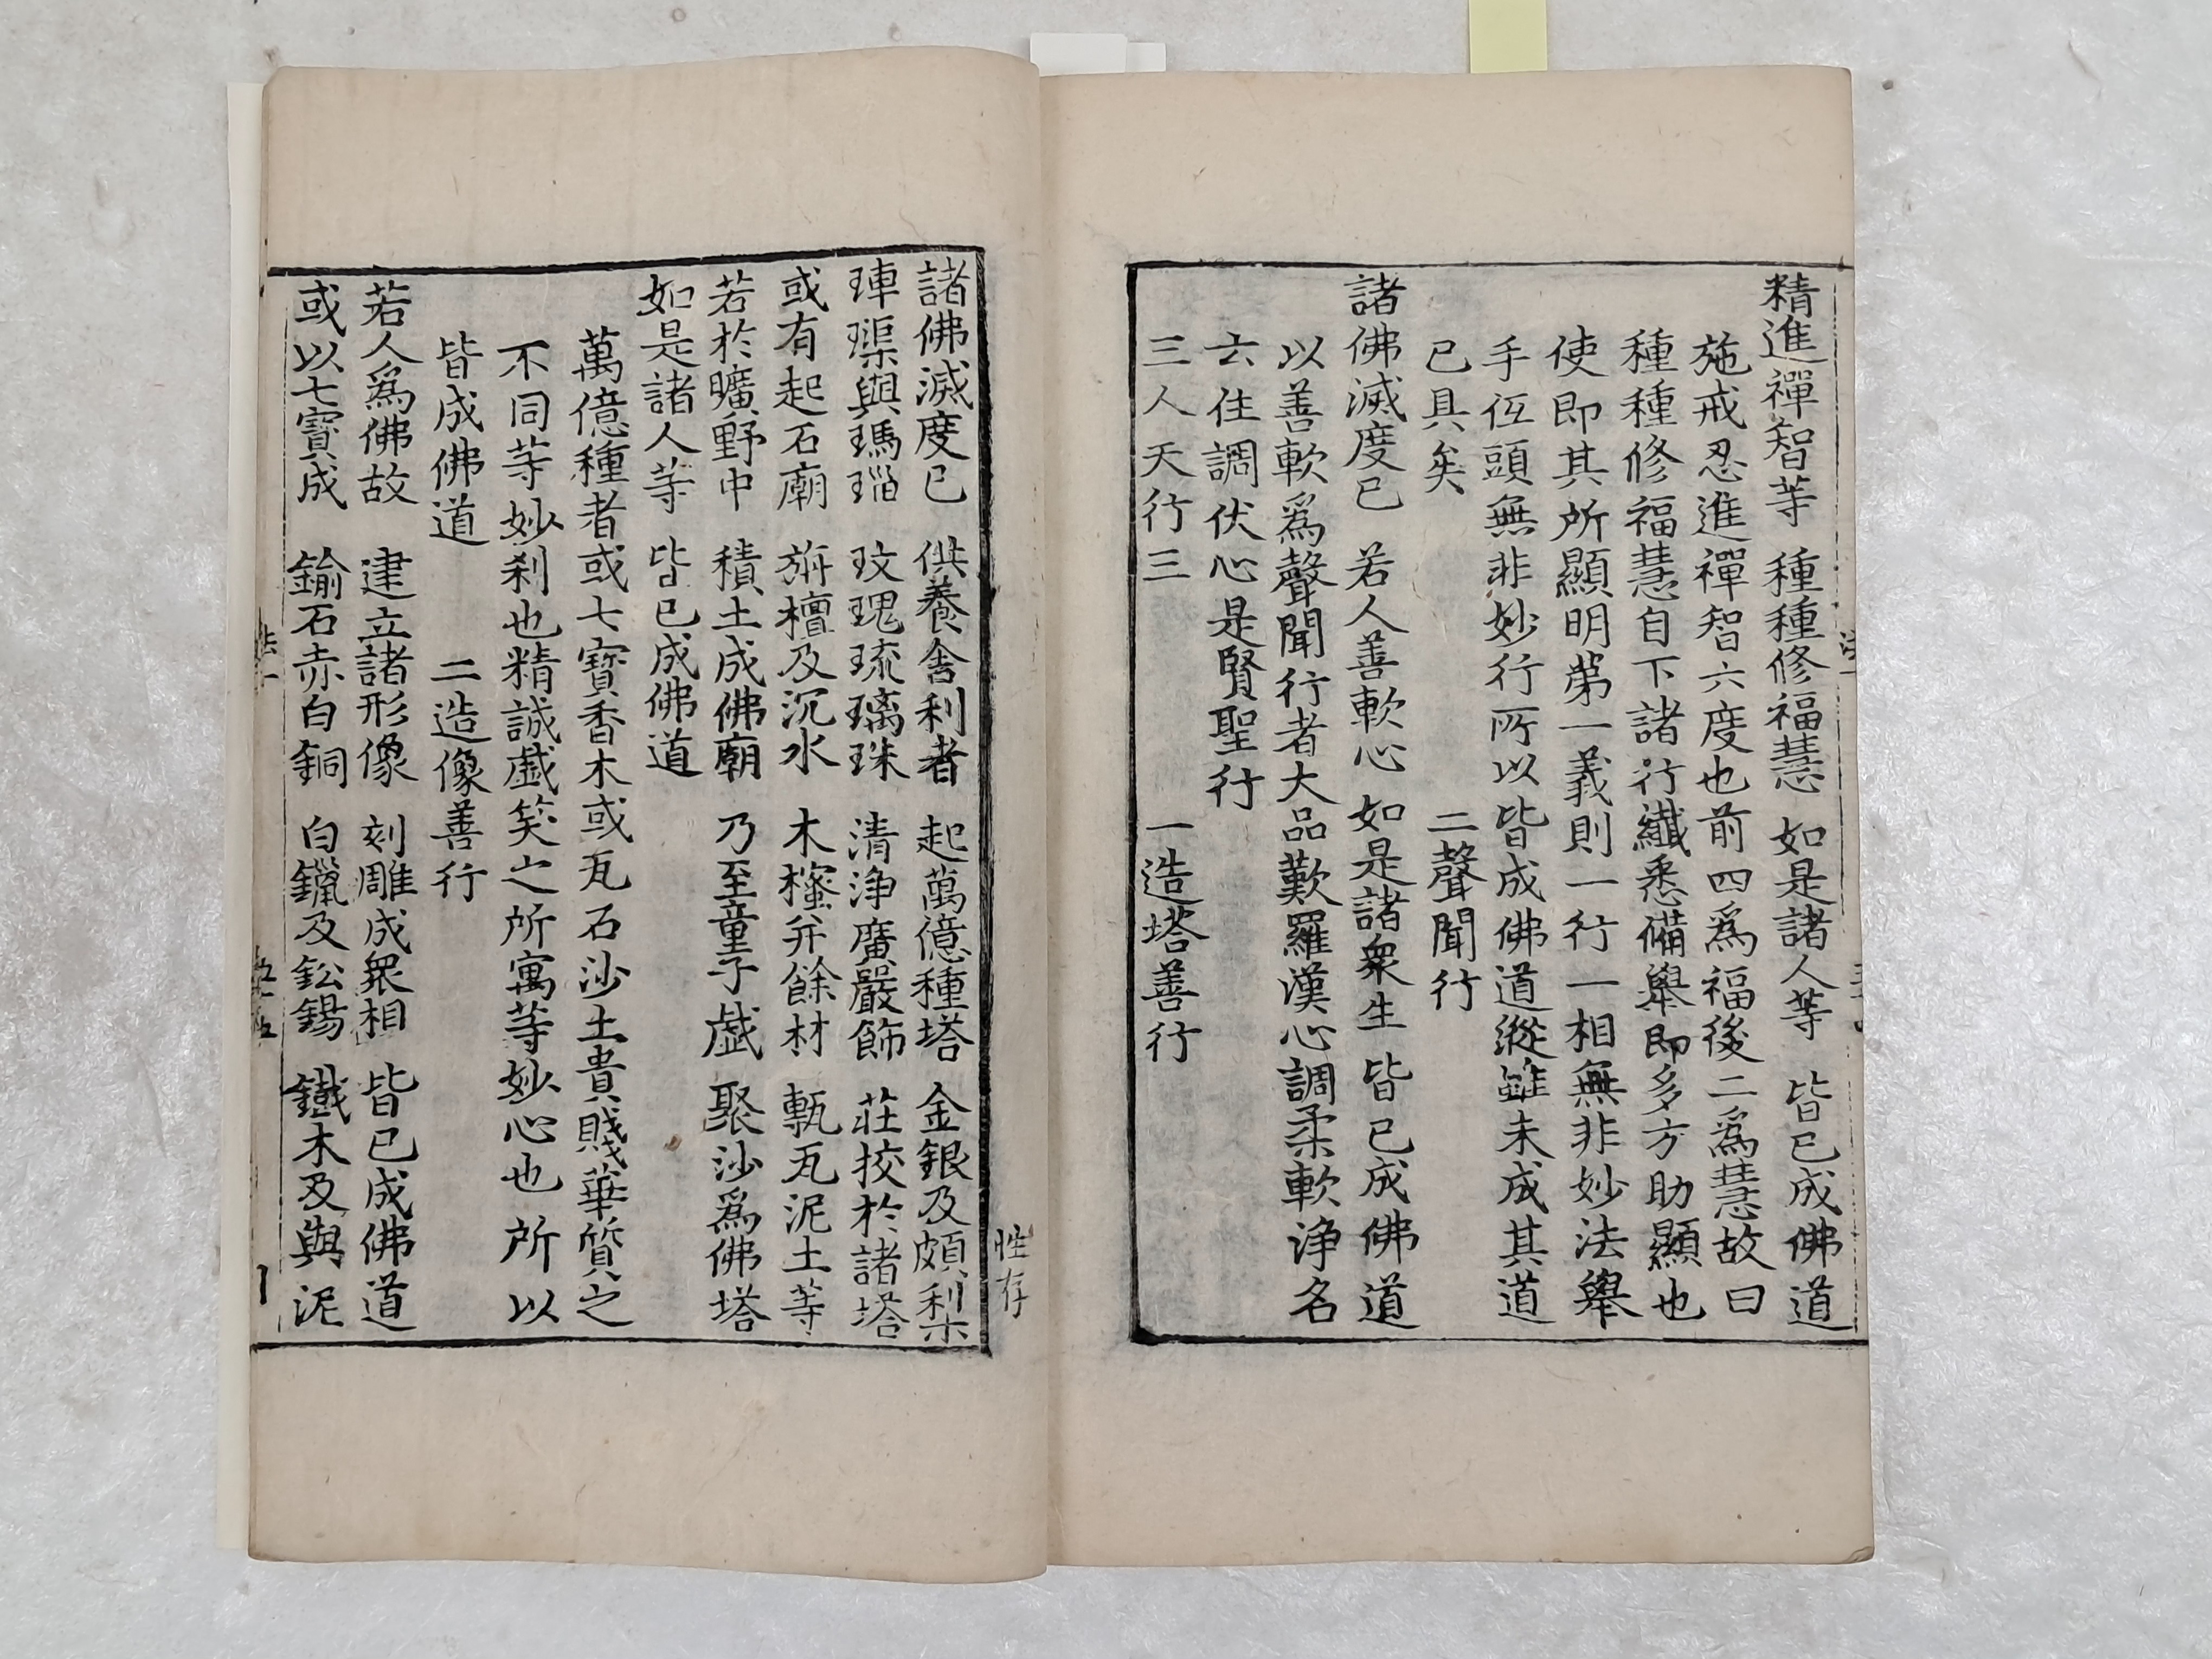 精進禪智等 種種修福慧 如是諸人等 皆已成佛道
施戒忍進禪智六度也前四爲福後二爲慧故曰
種種修福慧自下諸行纎悉備擧即多方助顯也
使即其所顯明第一義則一行一相無非妙法擧
手低頭無非妙行所以皆成佛道縱雖未成其道
已具矣 二聲聞行
諸佛滅度已 若人善軟心 如是諸衆生 皆已成佛道
以善軟爲聲聞行者大品歎羅漢心調柔軟淨名
云住調伏心是賢聖行
三人天行三 一造塔善行
諸佛滅度已 供養舍利者 起萬億種塔 金銀及頗梨
硨磲與瑪瑙 玫瑰琉璃珠 清淨廣嚴飾 莊挍於諸塔
或有起石廟 旃檀及沉水 木櫁幷餘材 甎瓦泥土等
若於曠野中 積土成佛廟 乃至童子戱 聚沙爲佛塔
如是諸人等 皆已成佛道
萬億種者或七寶香木或瓦石沙土貴賤華質之
不同等妙刹也精誠戱笑之所寓等妙心也所以
皆成佛道 二造像善行
若人爲佛故 建立諸形像 刻雕成衆相 皆已成佛道
或以七寶成 鍮石赤白銅 白鑞及鉛錫 鐵木及與泥
性存